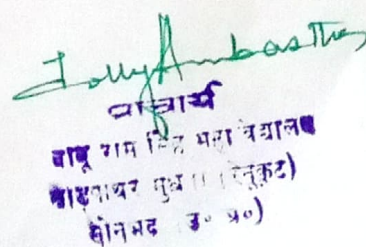 Jolly Ambastha
प्राचार्य
बाबू राम सिंह महाविद्यालय
(रेनूकूट)
सोनभद्र उ० प्र०)